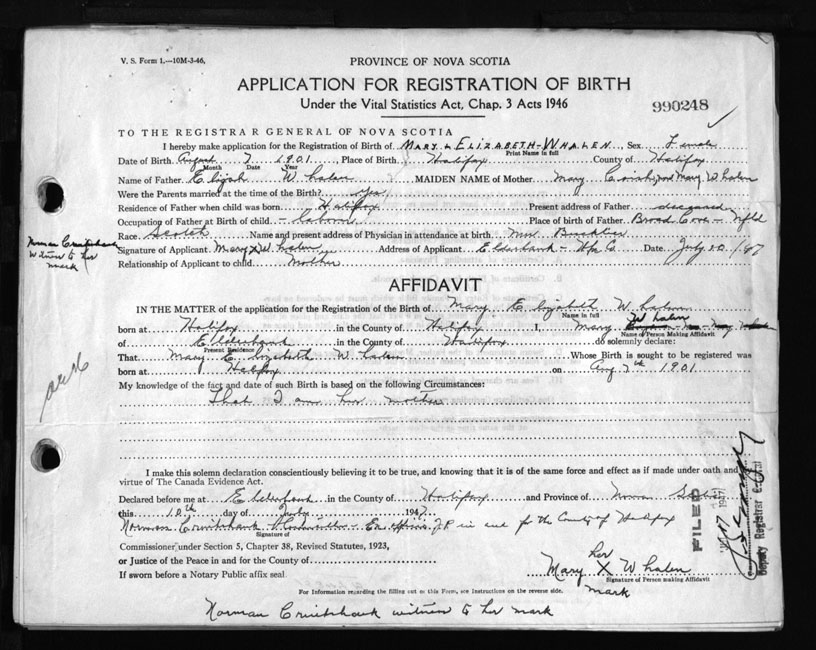 V. S. Form 1.—10M-3-46.
PROVINCE OF NOVA SCOTIA
APPLICATION FOR REGISTRATION OF BIRTH
Under the Vital Statistics Act, Chap. 3 Acts 1946
990248
TO THE REGISTRAR GENERAL OF NOVA SCOTIA
I hereby make application for the Registration of Birth of MARY ELIZABETH WHALEN Sex Female
Print Name in full
Date of Birth August 7 1901 Place of Birth Halifax County of Halifax
Month Date Year
Name of Father Elijah Whalen MAIDEN NAME of Mother Mary Mary Whalen
Were the Parents married at the time of the Birth? yes
Residence of Father when child was born Halifax Present address of Father deceased
Occupation of Father at Birth of child - Laborer Place of birth of Father Broad Cove - Nfld
Race Scotch Name and present address of Physician in attendance at birth Mrs.
Signature of Applicant Mary X Whalen Address of Applicant Elderbank - Hfx Co. Date July 10 /47
Relationship of Applicant to child Mother
Norman Cruikshank
Witness to her
mark
AFFIDAVIT
IN THE MATTER of the application for the Registration of Birth of Mary Elizabeth Whalen
Name in full
born at Halifax in the County of Halifax I, Mary Whalen
Name of Person Making Affidavit
of Elderbank in the County of Halifax do solemnly declare:
Present Residence
That Mary Elizabeth Whalen Whose Birth is sought to be registered was
born at Halifax on Aug 7th 1901
My knowledge of the fact and date of such Birth is based on the following Circumstances:
That I am her mother
I make this solemn declaration conscientiously believing it to be true, and knowing that it is of the same force and effect as if made under oath and
virtue of The Canada Evidence Act.
Declared before me at Elderbank in the County of Halifax and Province of Nova Scotia
this 10th day of July 1947
Norman Cruikshank J P in and for the County of Halifax
Signature of
Commissioner under Section 5, Chapter 38, Revised Statutes, 1923,
or Justice of the Peace in and for County of
If sworn before a Notary Public affix seal.
her
Mary X Whalen
Signature of Person making Affidavit
mark
For Information regarding the filling out of this Form, see Instructions on the reverse side.
Norman Cruikshank witness to her mark
FILED
Deputy Registrar